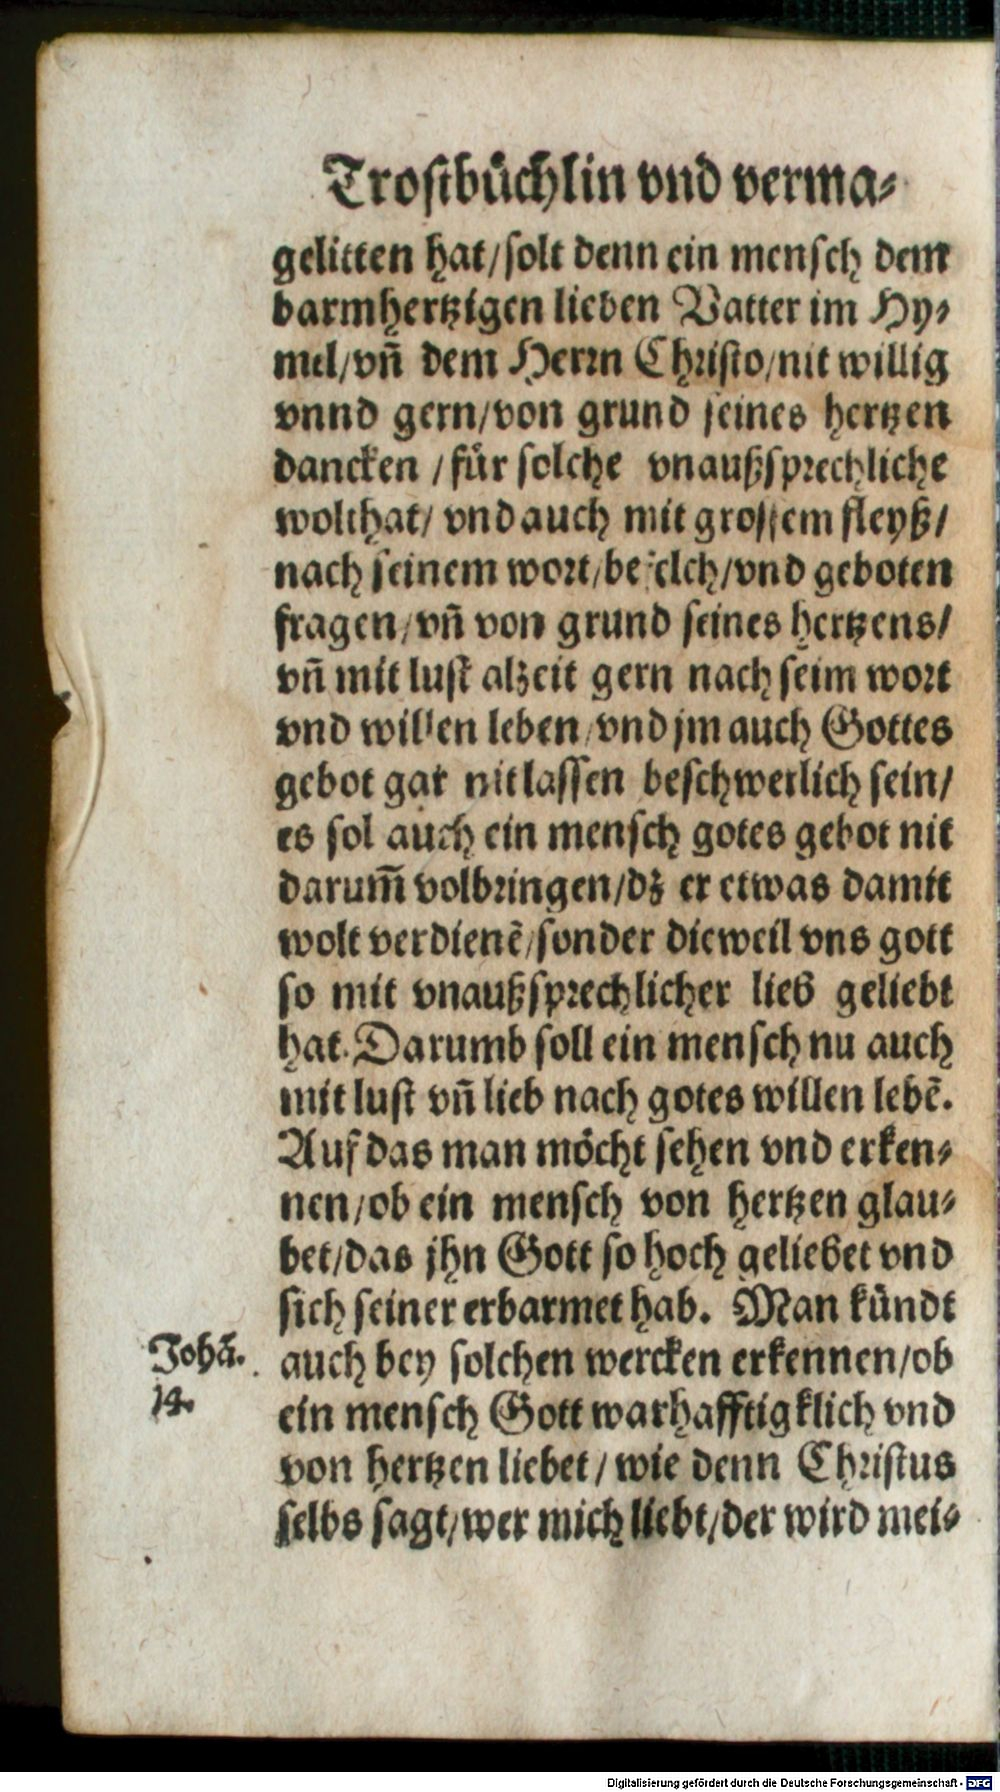 Troſtbuͤchlin vnd verma⸗
gelitten hat/ ſolt denn ein menſch dem
barmhertzigen lieben Vatter im Hy⸗
mel/ vñ dem Herrn Chriſto/ nit willig
vnnd gern/ von grund ſeines hertzen
dancken / fuͤr ſolche vnaußſprechliche
wolthat/ vnd auch mit groſſem fleyß/
nach ſeinem wort/ befelch/ vnd geboten
fragen/ vñ von grund ſeines hertzens/
vñ mit luſt alzeit gern nach ſeim wort
vnd willen leben/ vnd jm auch Gottes
gebot gar nit laſſen beſchwerlich ſein/
es ſol auch ein menſch gotes gebot nit
darum̃ volbringen/ dz er etwas damit
wolt verdienẽ/ ſonder dieweil vns gott
ſo mit vnaußſprechlicher lieb geliebt
hat. Darumb ſoll ein menſch nu auch
mit luſt vñ lieb nach gotes willen lebẽ.
Auf das man moͤcht ſehen vnd erken⸗
nen/ ob ein menſch von hertzen glau⸗
bet/ das jhn Gott ſo hoch geliebet vnd
ſich ſeiner erbarmet hab. Man kuͤndt
Johã.
14.
auch bey ſolchen wercken erkennen/ ob
ein menſch Gott warhafftigklich vnd
von hertzen liebet/ wie denn Chriſtus
ſelbs ſagt/ wer mich liebt/ der wird mei⸗
Digitalisierung gefördert durch die Deutsche Forschungsgemeinschaft - DFG